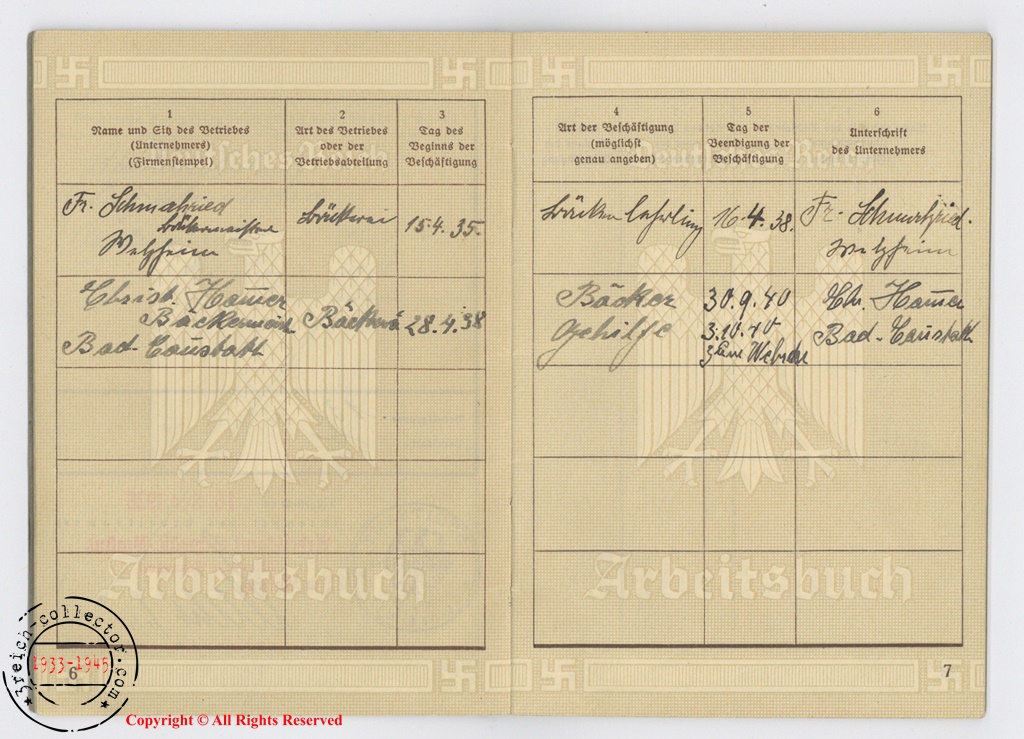 1
Name und Sitz des Betriebes
(Unternehmers)
(Firmenstempel)
2
Art des Betriebes
oder der
Betriebsabteilung
3
Tag des
Beginns der
Beschäftigung
Fr. Schmahlried
Bäckermeister
Welzheim
Bäckerei
15.4.35.
Christ. Hauser
Bäckermeist
Bad-Caustatt
Bäckerei
28.4.38
Deutsches Reich
Arbeitsbuch
6
4
Art der Beschäftigung
(möglichst
genau angeben)
5
Tag der
Beendigung der
Beschäftigung
6
Unterschrift
des Unternehmers
Bäckerlehrling
16.4.38.
Fr.
Welzheim
Bäcker
Gehilfe
30.9.40
3.10.40
zum
Chr. Hauser
Bad-Caustatt
Deutsches Reich
Arbeitsbuch
7
3reich-collector.com
1933-1945
Copyright © All Rights Reserved